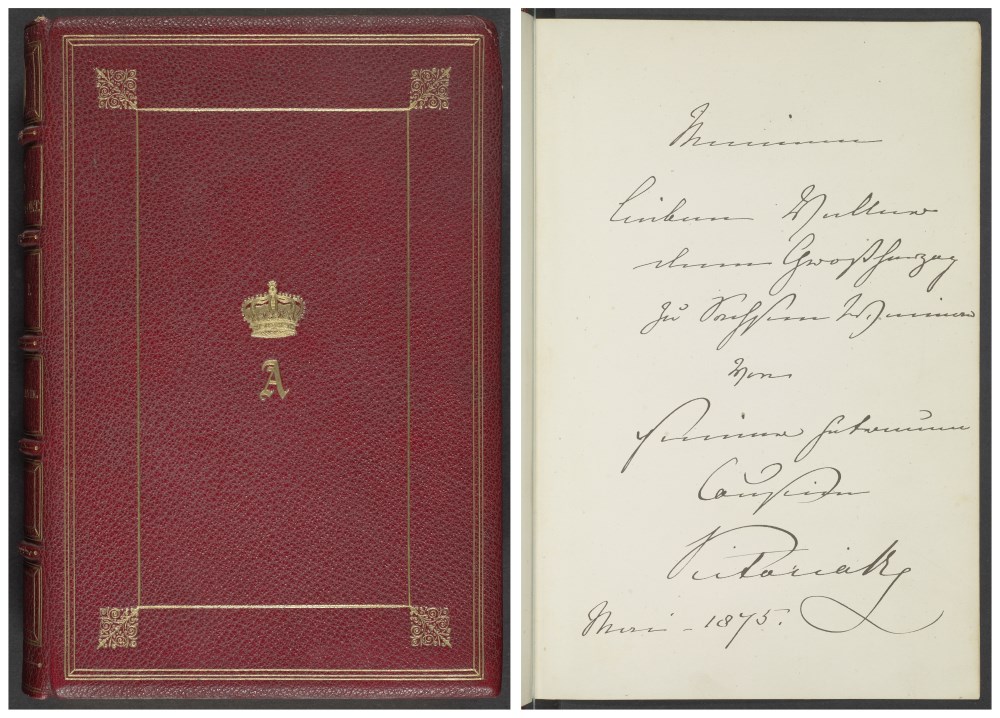 A
Meinem
lieben Vetter
dem Großherzog
zu Sachsen Weimar
von
seiner getreuen
Cousine
Victoria R
Mai - 1875.